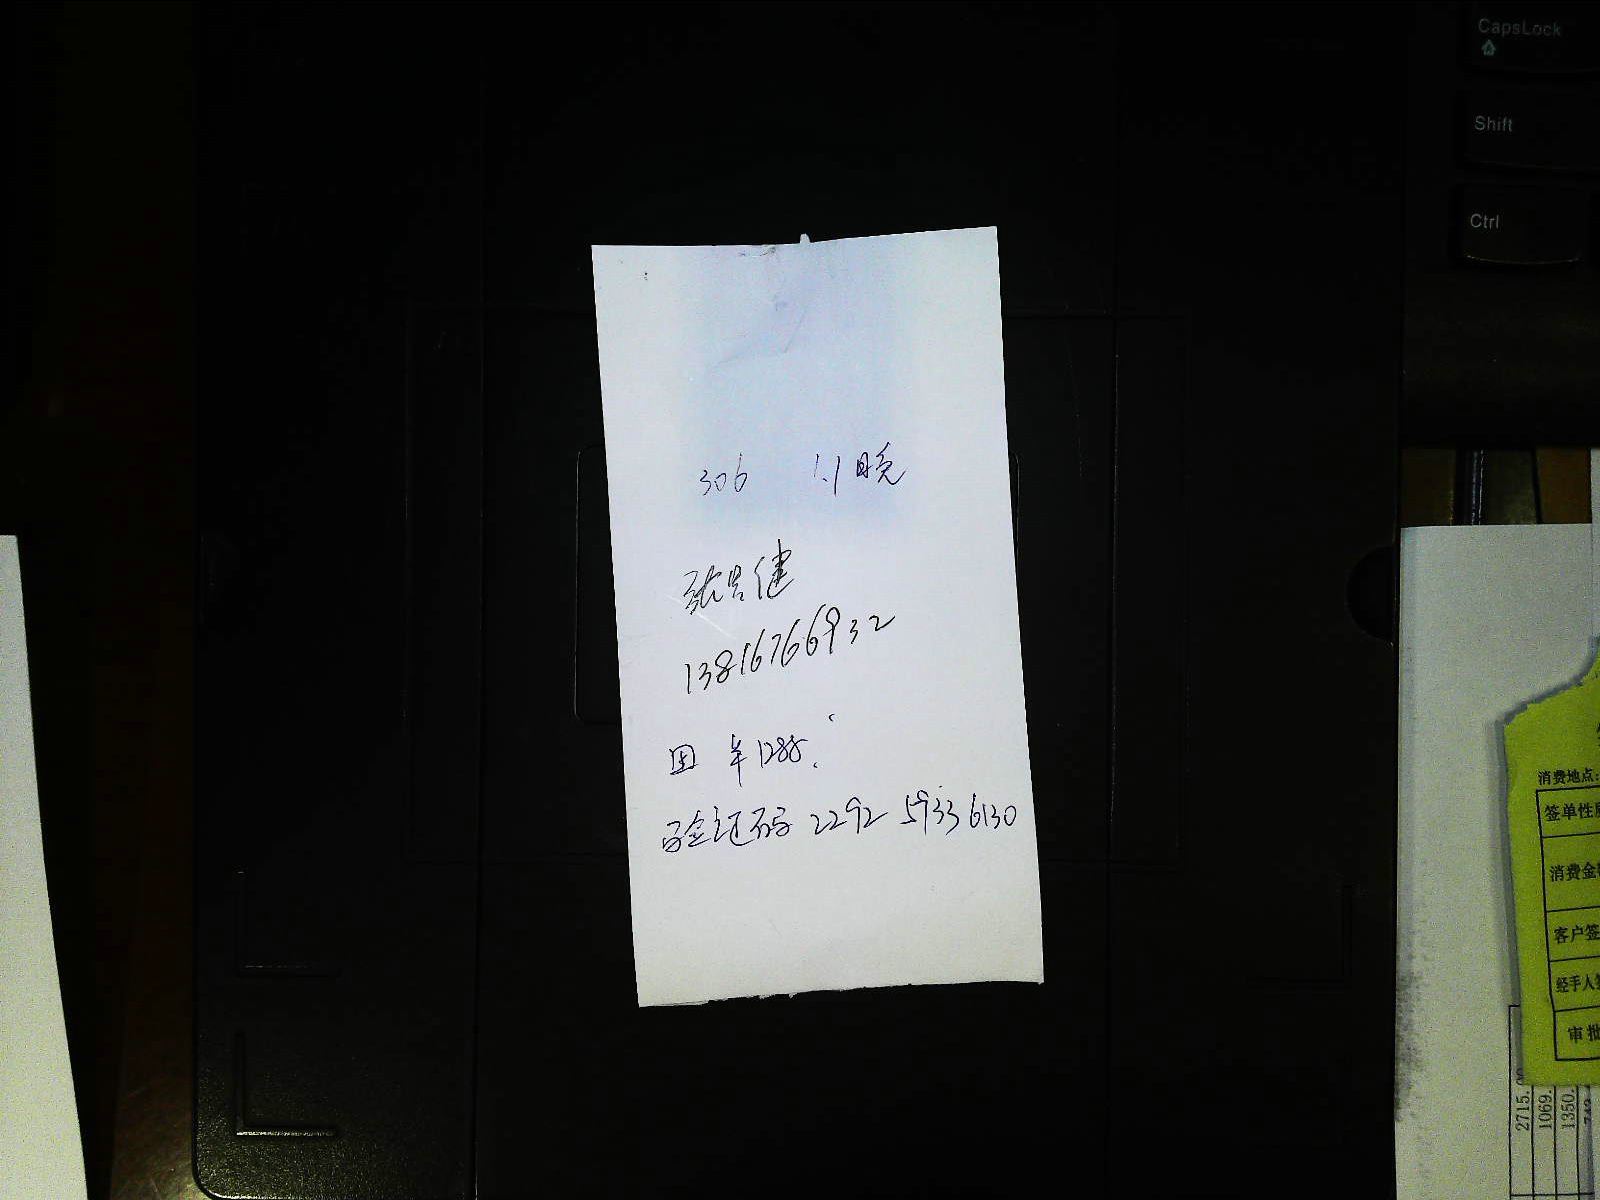 CapsLock
Shift
Ctrl
306 1.1晚
张 健
13816766932
团 羊1288.
验证码 2292 5933 6130
消费地点:
签单性
消费金
客户签
经手人
审批
2715.
1069.
1350.